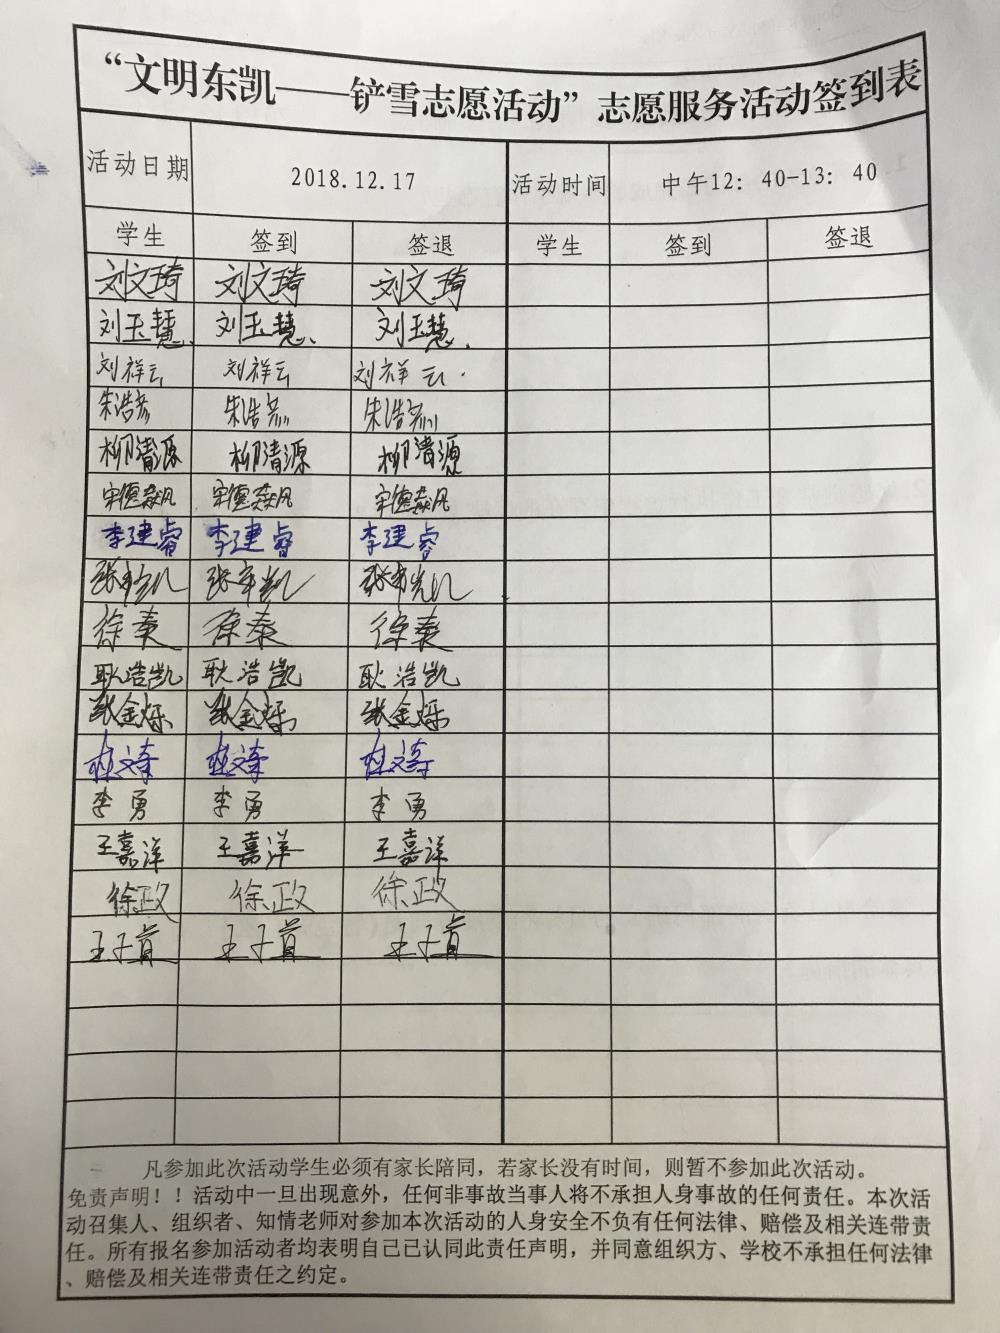 “文明东凯——铲雪志愿活动”志愿服务活动签到表
活动日期 2018.12.17 活动时间 中午12：40-13：40
学生 签到 签退 学生 签到 签退
刘文琦 刘文琦 刘文琦
刘玉慧 刘玉慧 刘玉慧
刘祥云 刘祥云 刘祥云
朱浩彦 朱浩彦 朱浩彦
柳清源 柳清源 柳清源
宋德焱凡 宋德焱凡 宋德焱凡
李建睿 李建睿 李建睿
徐泰 徐泰 徐泰
耿浩凯 耿浩凯 耿浩凯
张金烁 张金烁 张金烁
李勇 李勇 李勇
王嘉洋 王嘉洋 王嘉洋
徐政 徐政 徐政
凡参加此次活动学生必须有家长陪同，若家长没有时间，则暂不参加此次活动。
免责声明！！活动中一旦出现意外，任何非事故当事人将不承担人身事故的任何责任。本次活
动召集人、组织者、知情老师对参加本次活动的人身安全不负有任何法律、赔偿及相关连带责
任。所有报名参加活动者均表明自己已认同此责任声明，并同意组织方、学校不承担任何法律
、赔偿及相关连带责任之约定。